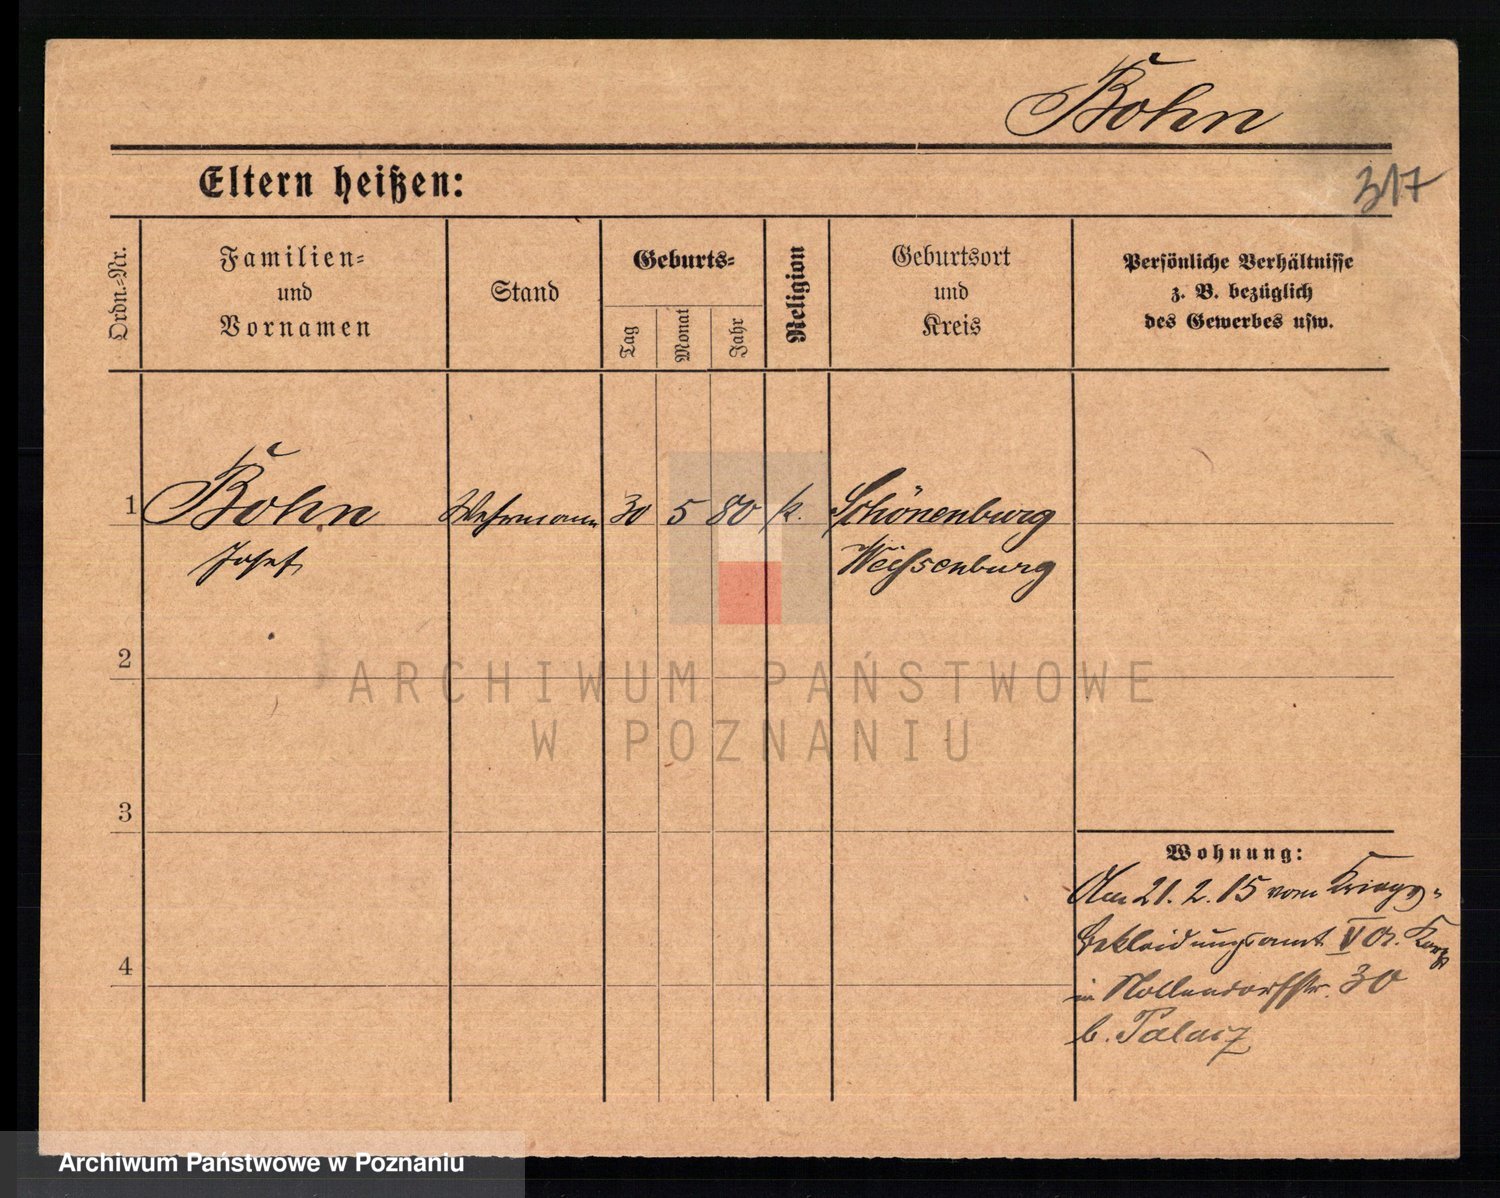 Bohn
317
Eltern heißen:
Ordn.-Nr.
Familien-
und
Vornamen
Stand
Geburts-
Tag
Monat
Jahr
Religion
Geburtsort
und
Kreis
Persönliche Verhältnisse
z. B. bezüglich
des Gewerbes usw.
1 Bohn Wehrmann 30 5 80 k. Schönenburg
Josef Weissenburg
2
ARCHIWUM PAŃSTWOWE
W POZNANIU
3
Wohnung:
Am 21. 2. 15 vom Kriegs-
bekleidungsamt V A. Korps
4
in Nollendorfstr. 30
b. Palacz
Archiwum Państwowe w Poznaniu